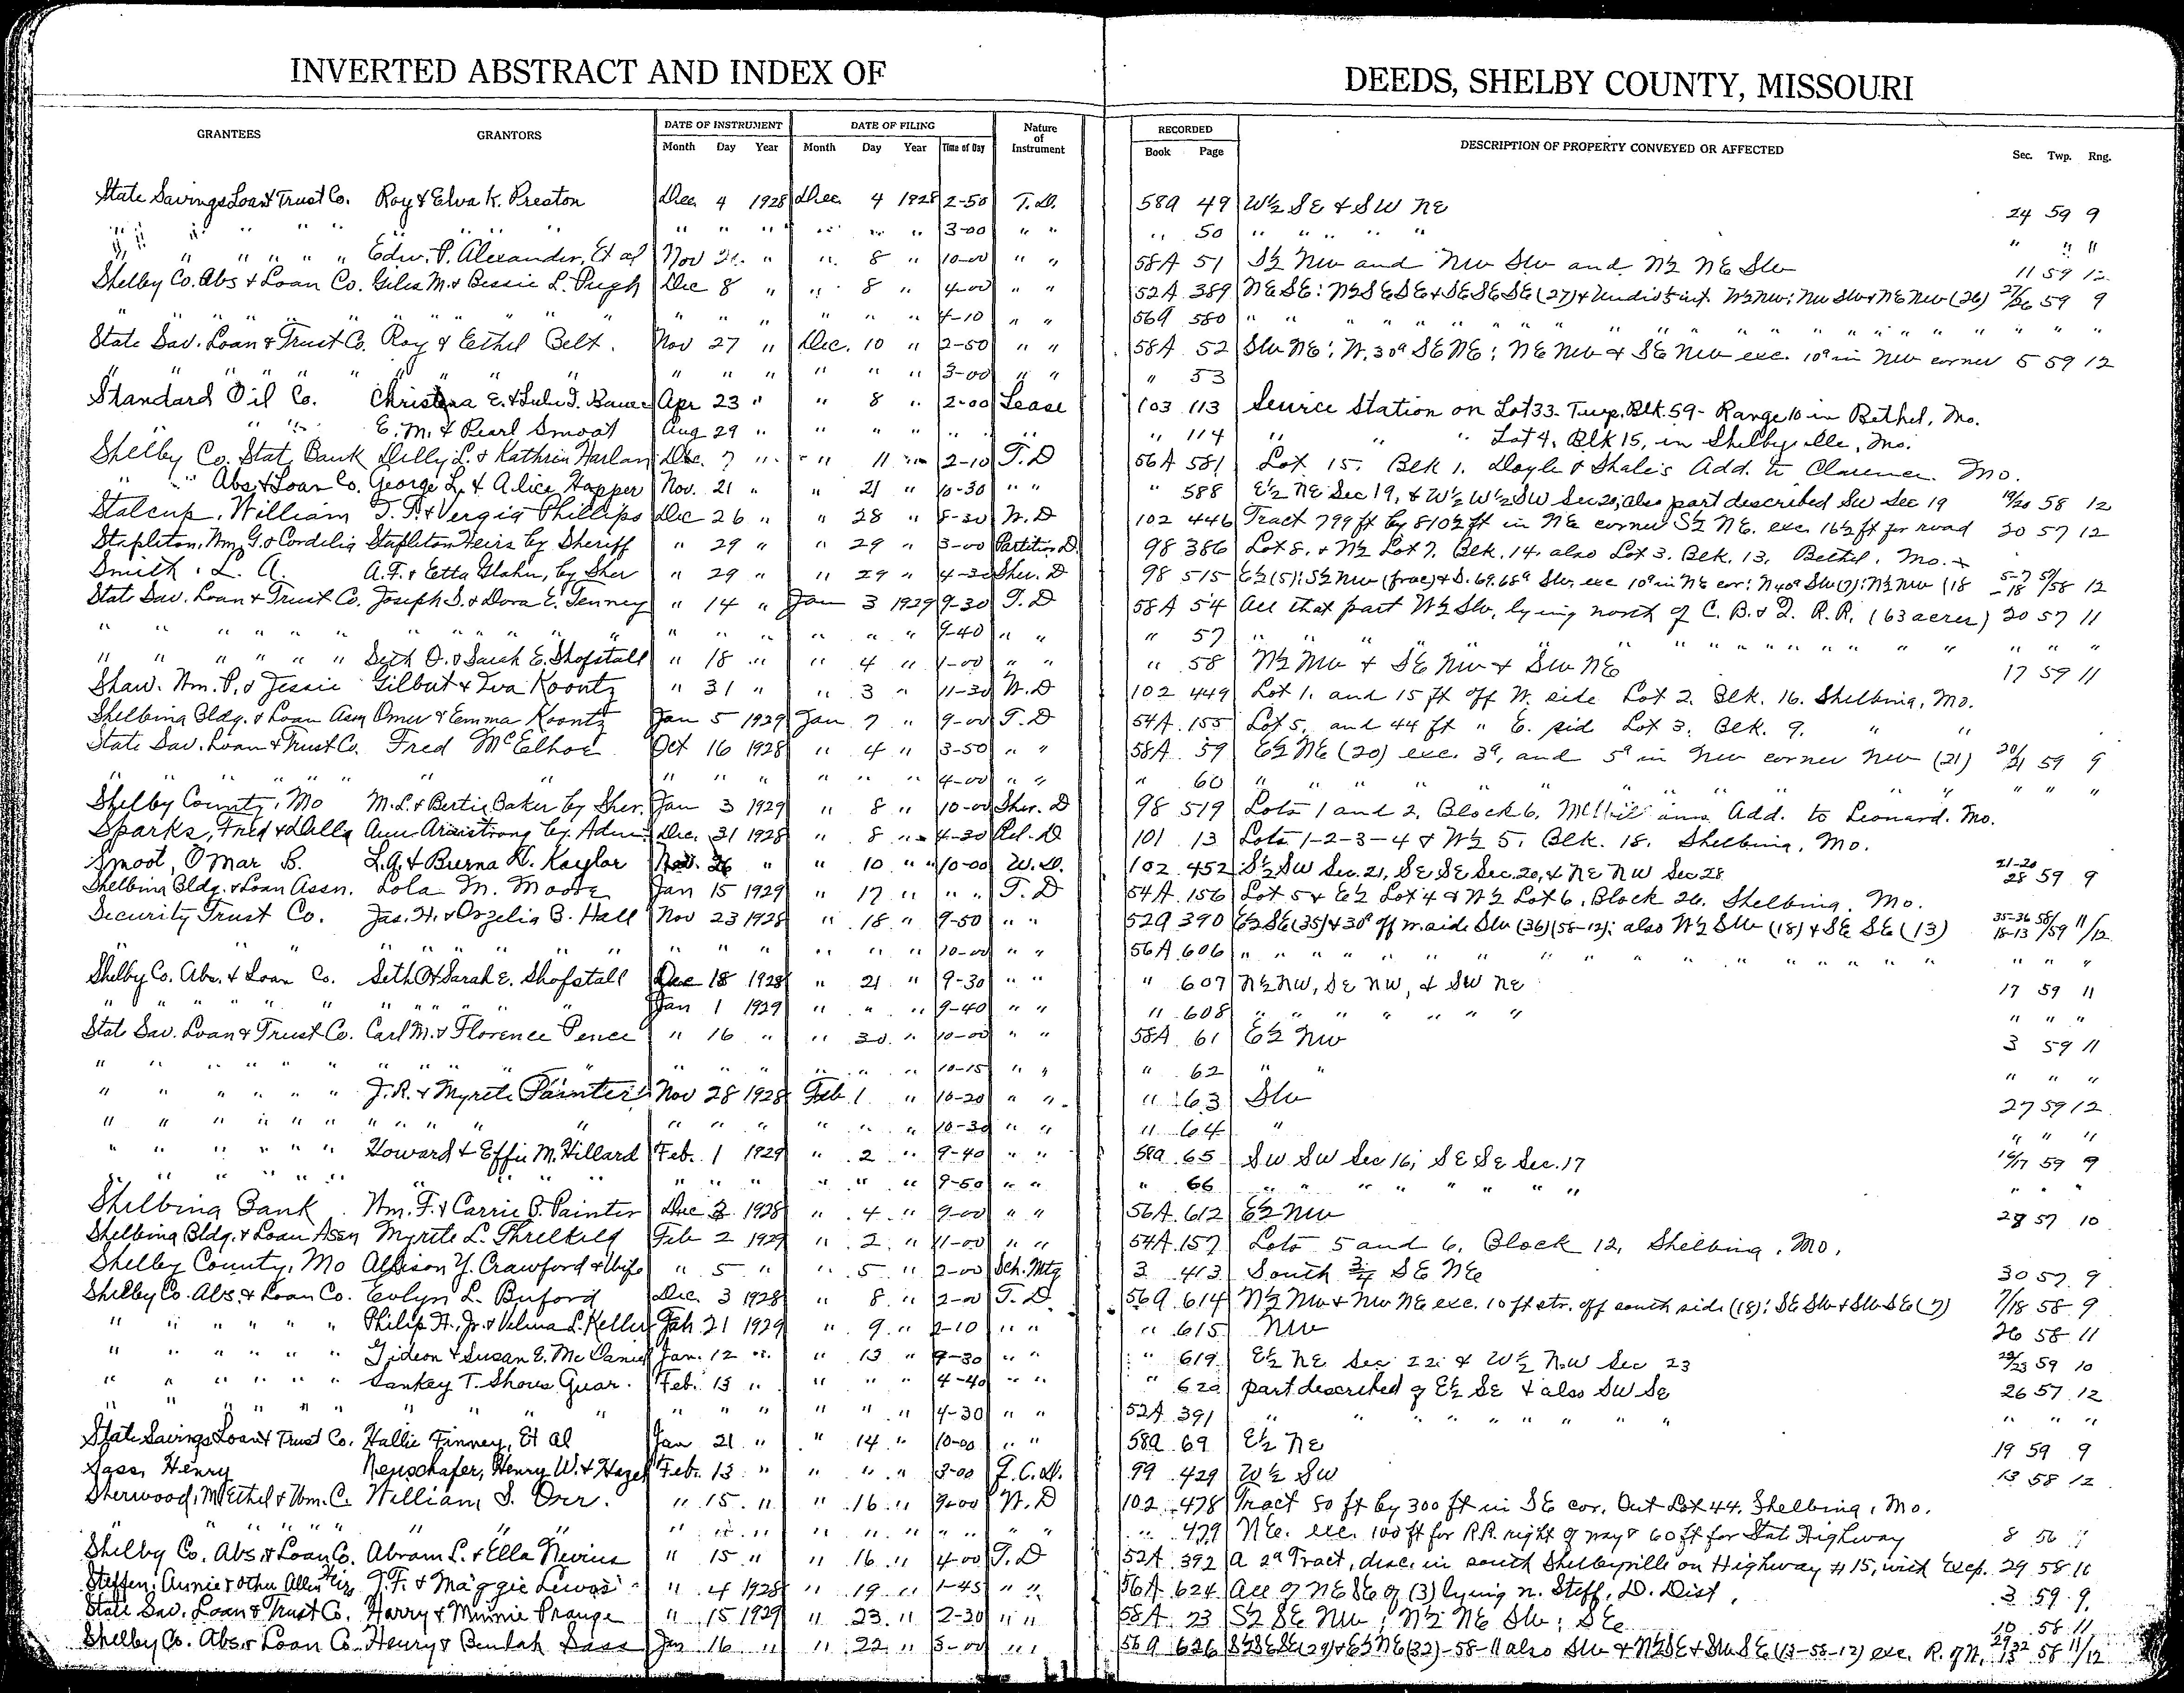 INVERTED ABSTRACT AND INDEX OF DEEDS, SHELBY COUNTY, MISSOURI
GRANTEES GRANTORS DATE OF INSTRUMENT DATE OF FILING Nature of Instrument RECORDED DESCRIPTION OF PROPERTY CONVEYED OR AFFECTED Sec. Twp. Rng.
Month Day Year Month Day Year Time of Day Book Page
State Savings Loan & Trust Co. Roy & Elva K. Preston Dec. 4 1928 Dec. 4 1928 2-50 T.D. 58A 49 W½ SE & SW NE 24 59 9
" " " " " " " " " " " " " " " 3-00 " " " 50 " " " " " " " "
" " " " " " Edw. P. Alexander, Et al Nov " " 8 " 10-00 " " 58A 51 S½ NW and NW SW and N½ NE SW 11 59 12
Shelby Co. Abs & Loan Co. Giles M. & Bessie L. Pugh Dec 8 " " 8 " 4-00 " " 52A 389 NE SE: N½ SE SE & SE SE SE (27) & Undis int. W½ NW: NW SW & NE NW (26) 27/26 59 9
" " " " " " " " " " " " " " " 4-10 " " 56A 580 " " " " " " " " " " " " " " "
State Sav. Loan & Trust Co. Roy & Ethel Belt. Nov 27 " Dec. 10 " 2-50 " " 58A 52 SW NE: W. 30a SE NE: NE NW & SE NW exc. 10a in NW corner 5 59 12
" " " " " " " " " " " " " " 3-00 " " " 53
Standard Oil Co. Christena E. & Bauer Apr 23 " " 8 " 2-00 Lease 103 113 Service Station on Lot 33- Twp. Blk. 59- Range 10 in Bethel, Mo.
" " " E. M. & Pearl Smoot Aug 29 " " " " " " " 114 " " " Lot 4, Blk 15, in Shelbyville, Mo.
Shelby Co. Stat. Bank Dilly L. & Kathrin Harlan Dec. 7 " " 11 " 2-10 T.D 56A 581 Lot 15. Blk 1. Doyle & Shale's Add. to Clarence. Mo.
" " Abs & Loan Co. George L. & Alice Hopper Nov. 21 " " 21 " 10-30 " " " 588 E½ NE Sec 19, & W½ W½ SW Sec 20; also part described SW Sec 19 19/20 58 12
Stalcup, William T. P. & Vergia Phillips Dec 26 " " 28 " 8-30 W.D 102 446 Tract 799 ft by 810½ ft in NE corner S½ NE. exc. 16½ ft for road 20 57 12
Stapleton, Wm. G. & Cordelia Stapleton Heirs by Sheriff " 29 " " 29 " 3-00 Partition D. 98 386 Lot 8. & N½ Lot 7. Blk. 14. also Lot 3. Blk. 13, Bethel. Mo.
Smith, L. A. A. F. & Etta Glahn, by Sher " 29 " " 29 " 4-30 Sher. D 98 515 E½ (5); S½ NW (frac) & S. 69.68a SW, exc 10a in NE cor: N 40a SW (7); N½ NW (18 5-7 -18 59/58 12
State Sav. Loan & Trust Co. Joseph S. & Dora E. Tenney " 14 " Jan 3 1929 9-30 T.D 58A 54 All that part W½ SW, lying north of C. B. & Q. R.R. (63 acres) 20 57 11
" " " " " " " " " " " " " " " " 9-40 " " " 57 " " " " " " " " " " " "
" " " " " " Seth O. & Sarah E. Shofstall " 18 " " 4 " 1-00 " " " 58 N½ NW & SE NW & SW NE 17 59 11
Shaw. Wm. P. & Jessie Gilbert & Iva Koontz " 31 " " 3 " 11-30 W.D 102 449 Lot 1. and 15 ft off W. side Lot 2. Blk. 16. Shelbina, Mo.
Shelbina Bldg. & Loan Assn Omer & Emma Koontz Jan 5 1929 Jan 7 " 9-00 T.D 54A 155 Lot 5, and 44 ft " E. sid Lot 3. Blk. 9. " "
State Sav. Loan & Trust Co. Fred McElhoe Oct 16 1928 " 4 " 3-50 " " 58A 59 E½ NE (20) exc. 3a, and 5a in NW corner NW (21) 20/21 59 9
" " " " " " " " " " " " " 4-00 " " " 60 " " " " " " " " " " "
Shelby County, Mo M. L. & Bertie Baker by Sher. Jan 3 1929 " 8 " 10-00 Sher. D 98 519 Lots 1 and 2, Block 6, Add. to Leonard. Mo.
Sparks, Fred & Della Ann Armstrong by Adm. Dec. 31 1928 " 8 " 4-30 Rel. D 101 13 Lots 1-2-3-4 & W½ 5. Blk. 18. Shelbina, Mo.
Smoot, Omar B. L. A. & Burna D. Kaylor Nov. 26 " " 10 " 10-00 W.D. 102 452 S½ SW Sec. 21, SE SE Sec. 20, & NE NW Sec 28 21-20 28 59 9
Shelbina Bldg. & Loan Assn. Lola M. Moore Jan 15 1929 " 17 " " " T.D 54A 156 Lot 5 & E½ Lot 4 & W½ Lot 6, Block 26. Shelbina, Mo.
Security Trust Co. Jas. H. & Orzelia B. Hall Nov 23 1928 " 18 " 9-50 " " 52A 390 E½ SE (35) & 30a off W. side SW (36) (58-12): also W½ SW (18) & SE SE (13) 35-36 18-13 58/59 11/12
" " " " " " " " " " " " " 10-00 " " 56A 606 " " " " " " " " " " " "
Shelby Co. Abs. & Loan Co. Seth O & Sarah E. Shofstall Dec 18 1928 " 21 " 9-30 " " " 607 N½ NW, SE NW, & SW NE 17 59 11
" " " " " " " " " " Jan 1 1929 " " " 9-40 " " " 608 " " " " " " " " "
Stat Sav. Loan & Trust Co. Carl M. & Florence Pence " 16 " " 30 " 10-00 " " 58A 61 E½ NW 3 59 11
" " " " " " " " " " " " " " 10-15 " " " 62 " " " " "
" " " " " " J. R. & Myrtle Painter Nov 28 1928 Feb 1 " 10-20 " " " 63 SW 27 59 12
" " " " " " " " " " " " " " " 10-30 " " " 64 " " " "
" " " " " " Howard & Effie M. Hillard Feb. 1 1929 " 2 " 9-40 " " 58A 65 SW SW Sec 16; SE SE Sec. 17 16/17 59 9
" " " " " " " " " " " " " " 9-50 " " " 66 " " " " " " " " " "
Shelbina Bank Wm. F. & Carrie B. Painter Dec 3 1928 " 4 " 9-00 " " 56A 612 E½ NW 28 57 10
Shelbina Bldg. & Loan Assn Myrtle L. Threlkeld Feb 2 1929 " 2 " 11-00 " " 54A 157 Lots 5 and 6, Block 12, Shelbina, Mo.
Shelby County, Mo Allison Y. Crawford & Wife " 5 " " 5 " 2-00 Sch. Mtg 3 413 South ¾ SE NE 30 57 9
Shelby Co. Abs. & Loan Co. Evlyn L. Buford Dec. 3 1928 " 8 " 2-00 T.D. 56A 614 N½ NW & NW NE exc. 10 ft str. off south side (18); SE SW & SW SE (7) 7/18 58 9
" " " " " " Philip H. Jr. & Velma L. Keller 21 1929 " 9 " 2-10 " " " 615 NW 26 58 11
" " " " " " Gideon & Susan E. McDaniel Jan. 12 " " 13 " 9-30 " " " 619 E½ NE Sec 22: & W½ NW Sec 23 22/23 59 10
" " " " " " Sankey T. Shous Guar. Feb. 13 " " " " 4-40 " " " 620 part described of E½ SE & also SW SE 26 57 12
" " " " " " " " " " " " " " " 4-30 " " 52A 391 " " " " " " " " " "
State Savings Loan & Trust Co. Hallie Finney, Et al Jan 21 " " 14 " 10-00 " " 58A 69 E½ NE 19 59 9
Sass, Henry Neuschafer, Henry W. & Hazel Feb. 13 " " " " 3-00 Q.C.D. 99 429 W½ SW 13 58 12
Sherwood, M. Ethel & Wm. C. William S. Orr. " 15 " " 16 " 9-00 W.D 102 478 Tract 50 ft by 300 ft in SE cor. Out Lot 44, Shelbina, Mo.
" " " " " " " " " " " " " " " " 479 NE. exc. 100 ft for R.R. right of way & 60 ft for Stat Highway 8 56 "
Shelby Co. Abs. & Loan Co. Abram L. & Ella Nevius " 15 " " 16 " 4-00 T.D 52A 392 A 2a Tract, desc. in south Shelbyville on Highway #15, with Excp. 29 58 10
Steffen, Annie & other Allen Heirs J. F. & Maggie Lewis " 4 1928 " 19 " 1-45 " " 56A 624 All of NE SE of (3) lying n. Steff. D. Dist. 3 59 9
Stat Sav. Loan & Trust Co. Harry & Minnie Prange " 15 1929 " 23 " 2-30 " " 58A 23 S½ SE NW; N½ NE SW; SE 10 58 11
Shelby Co. Abs. & Loan Co. Henry & Beulah Sass Jan 16 " " 22 " 3-00 " " 56A 626 S½ SE SE (29) & E½ NE (32)-58-11 also SW & N½ SE & SW SE (13-58-12) exc. R. of W. 29 32 13 58 11/12